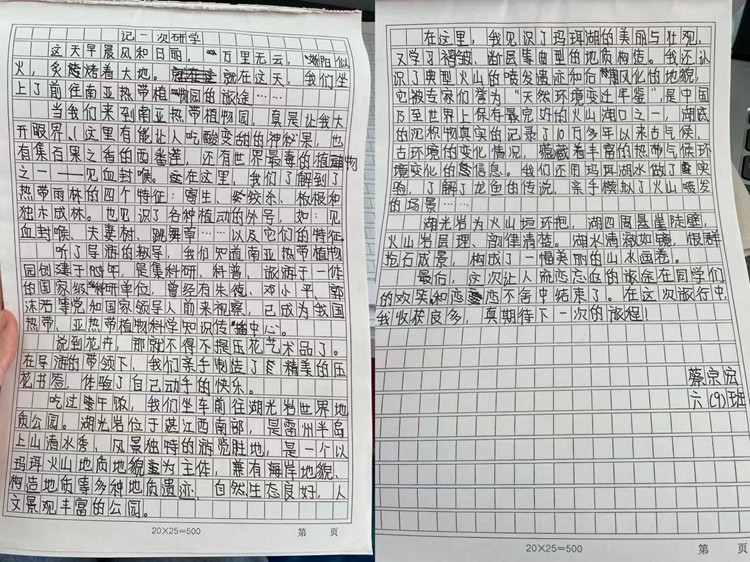 记一次研学
这天早晨风和日丽，万里无云，骄阳似
火，炙烤着大地。就在这天，我们坐
上了前往南亚热带植物园的旅途……
当我们来到南亚热带植物园，真是让我大
开眼界，这里有能让人吃酸变甜的神秘果，也
有集百果之香的西番莲，还有世界最毒的植物
之一——见血封喉。在这里，我们了解到了
热带雨林的四个特征：寄生、绞杀、板根和
独木成林。也见识了各种植动的外号，如：见
血封喉、夫妻树、跳舞草……以及它们的特征。
听了导游的教导，我们知道南亚热带植物
园创建于年，是集科研、科普、旅游于一体
的国家级科研单位，曾经有朱德、邓小平、郭
沫若等党和国家领导人前来视察，已成为我国
热带、亚热带植物科学知识传播中心。
说到花卉，那就不得不提压花艺术品了。
在导游的带领下，我们亲手制造了精美的压
花书签，体验了自己动手的快乐。
吃过午饭，我们坐车前往湖光岩世界地
质公园。湖光岩位于湛江西南部，是雷州半岛
上山清水秀、风景独特的游览胜地，是一个以
玛珥火山地质地貌为主体，兼有海岸地貌、
构造地质等多种地质遗迹，自然生态良好，人
文景观丰富的公园。
20×25=500 第 页
在这里，我见识了玛珥湖的美丽与壮观，
又学习褶皱、断层等典型的地质构造。我还认
识了典型火山的喷发遗迹和后期风化的地貌，
它被专家们誉为“天然环境变迁年鉴”，是中国
乃至世界上保存最完好的火山湖口之一，湖底
的沉积物真实的记录了10万多年以来古气候、
古环境的变化情况，蕴藏着丰富的热带气候环
境变化的信息。我们还用玛珥湖水做了实
验，了解了龙鱼的传说，亲手模拟了火山喷发
的场景……
湖光岩为火山垣环抱，湖四周悬崖陡壁，
火山岩层理、韵律清楚。湖水清澈如镜，恨群
抢石成景，构成了一幅美丽的山水画卷。
最后，这次让人流恋忘返的旅途在同学们
的欢笑和恋恋不舍中结束了。在这次旅行中，
我收获良多，真期待下一次的旅程！
蔡宗宏
六（9）班
20×25=500 第 页